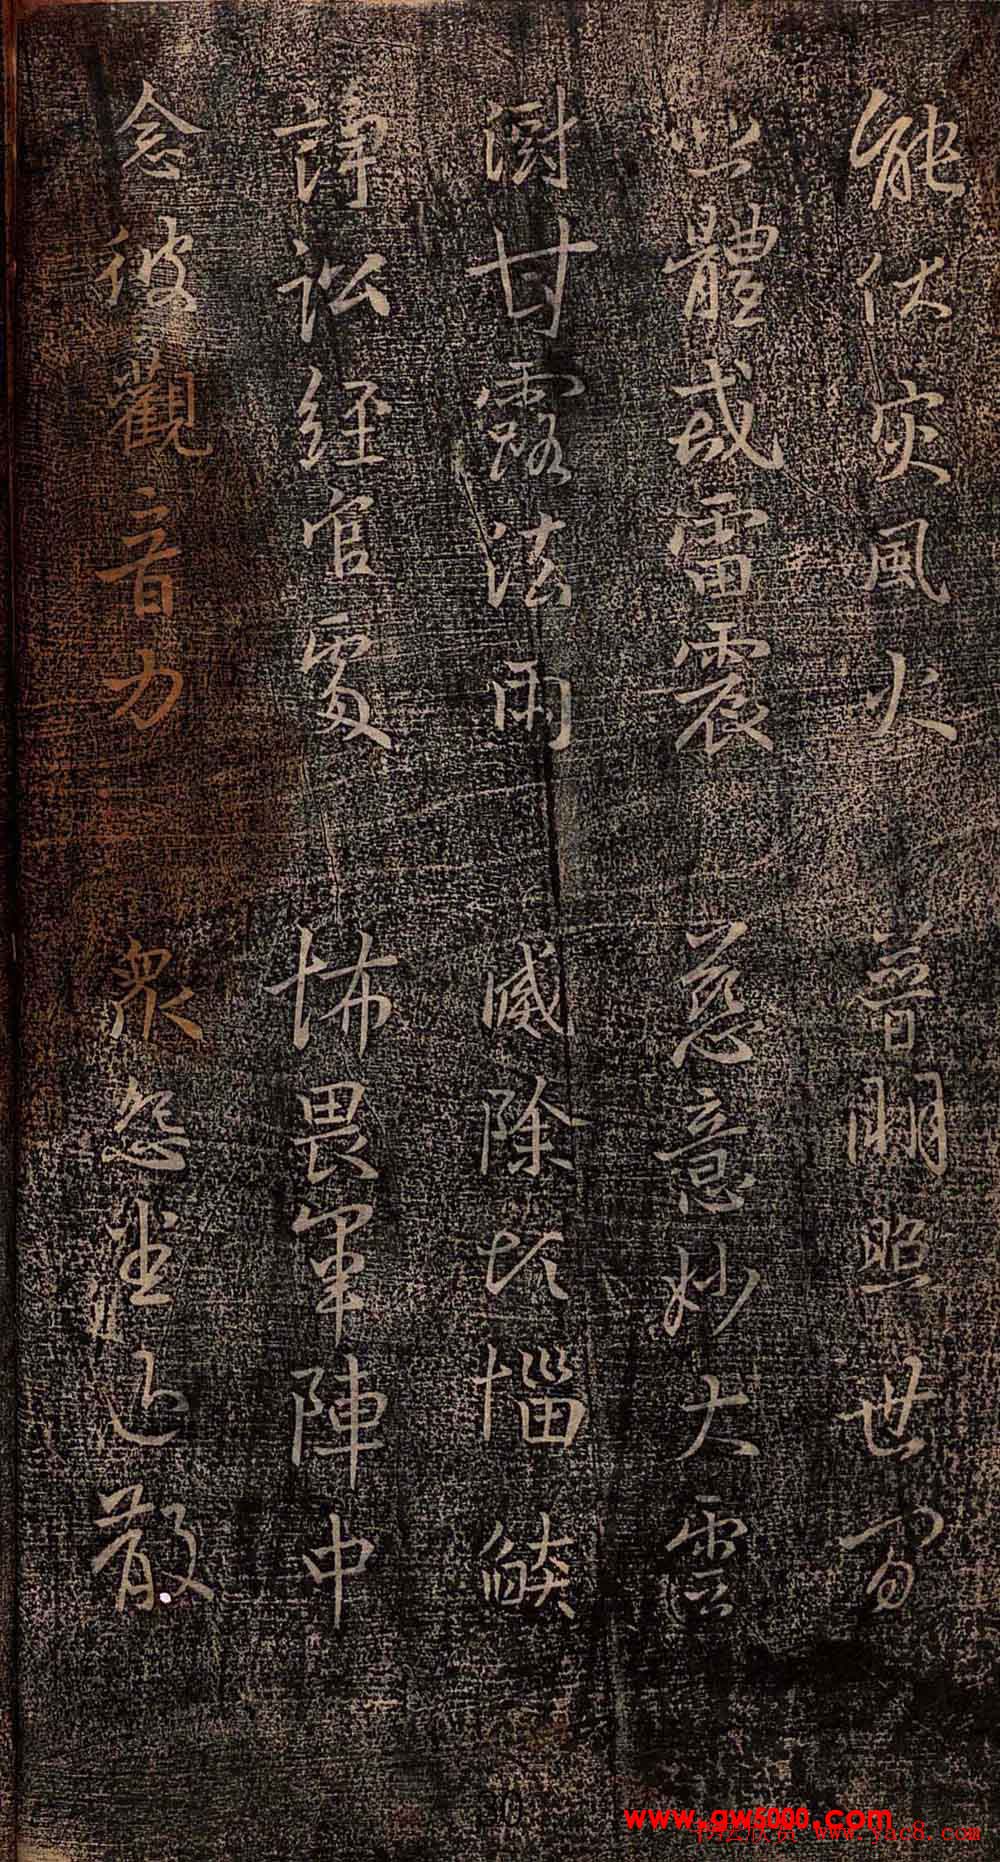 能伏灾風火 普明照世間
悲體戒雷震 慈意妙大雲
澍甘露法雨 滅除煩惱焰
諍訟經官處 怖畏軍陣中
念彼觀音力 衆怨悉退散
www.gw5000.com
www.yac8.com